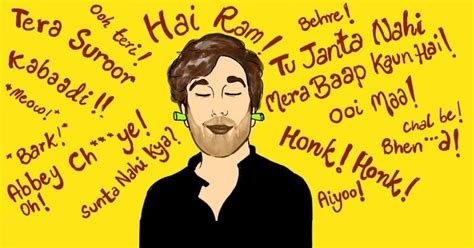 Ooh teri!
Tera Suroor
Kabaadi!!
*Meow!*
"Bark!"
Abbey Ch***ye!
Oh!
Sunta Nahi Kya?
Hai Ram!
Behre!
Tu Janta Nahi
Mera Baap Kaun Hai!
Ooi Maa!
chal be!
Bhen***a!
Honk! Honk!
Aiyoo!